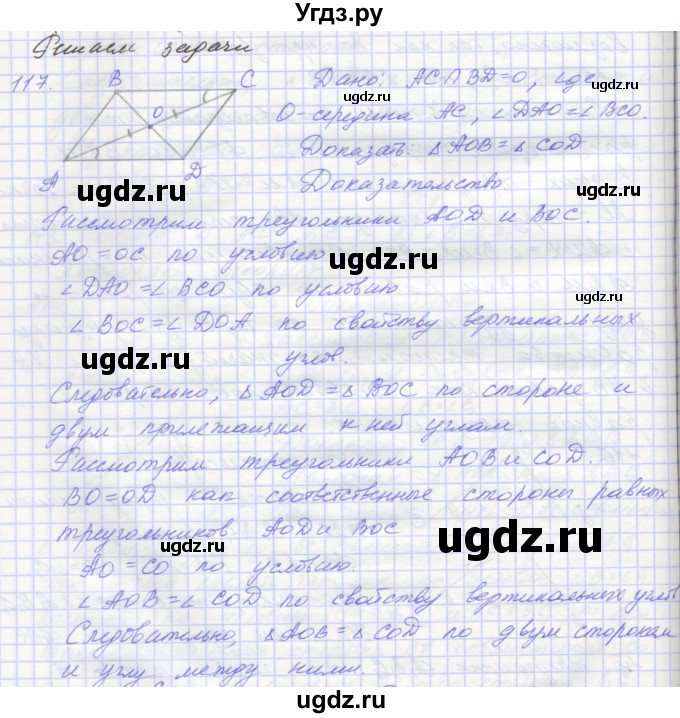 Угдз.ру
Решаем задачи
117. B C Дано: AC∩BD=O, где
O O-середина AC, ∠DAO=∠BCO.
Доказать: ΔAOB=ΔCOD
A D Доказательство.
ugdz.ru ugdz.ru
Рассмотрим треугольники AOD и BOC.
AO=OC по условию ugdz.ru
∠DAO=∠BCO по условию ugdz.ru
∠BOC=∠DOA по свойству вертикальных
ugdz.ru углов.
Следовательно, ΔAOD=ΔBOC по стороне и
двум прилежащим к ней углам.
Рассмотрим треугольники AOB и COD.
BO=OD как соответственные стороны равных
треугольников AOD и BOC ugdz.ru
ugdz.ru
AO=CO по условию.
∠AOB=∠COD по свойству вертикальных углов
Следовательно, ΔAOB=ΔCOD по двум сторонам
ugdz.ru ugdz.ru
и углу между ними.
ugdz.ru